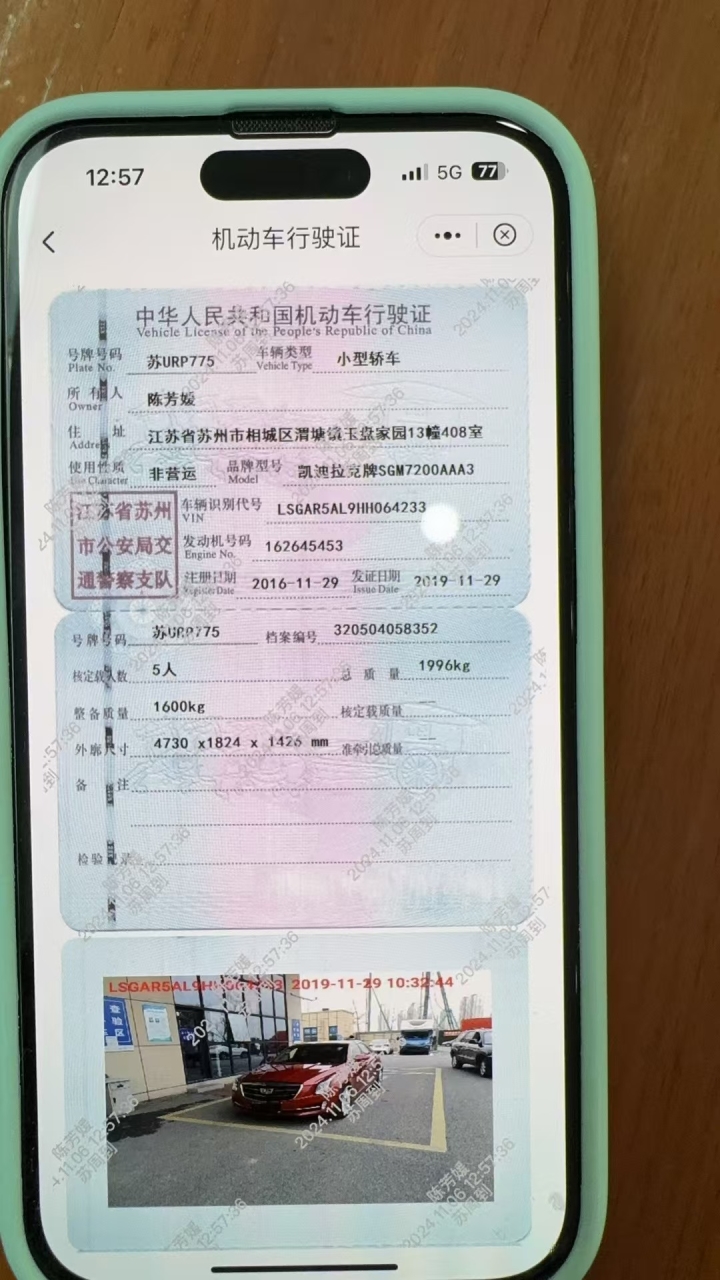 12:57 5G 77
机动车行驶证
中华人民共和国机动车行驶证
Vehicle License of the People's Republic of China
号牌号码 苏URP775 车辆类型 小型轿车
Plate No. Vehicle Type
所有人 陈芳媛
Owner
住址 江苏省苏州市相城区渭塘镇玉盘家园13幢408室
Address
使用性质 非营运 品牌型号 凯迪拉克牌SGM7200AAA3
Use Character Model
江苏省苏州 车辆识别代号 LSGAR5AL9HH064233
VIN
市公安局交 发动机号码 162645453
Engine No.
通警察支队 注册日期 2016-11-29 发证日期 2019-11-29
Register Date Issue Date
号牌号码 苏URP775 档案编号 320504058352
核定载人数 5人 总质量 1996kg
整备质量 1600kg 核定载质量 —
外廓尺寸 4730 x1824 x 1426 mm 准牵引总质量 —
备注
检验记录
LSGAR5AL9HH064233 2019-11-29 10:32:44
查验区
陈芳媛
2024.11.06 12:57:36
苏周到